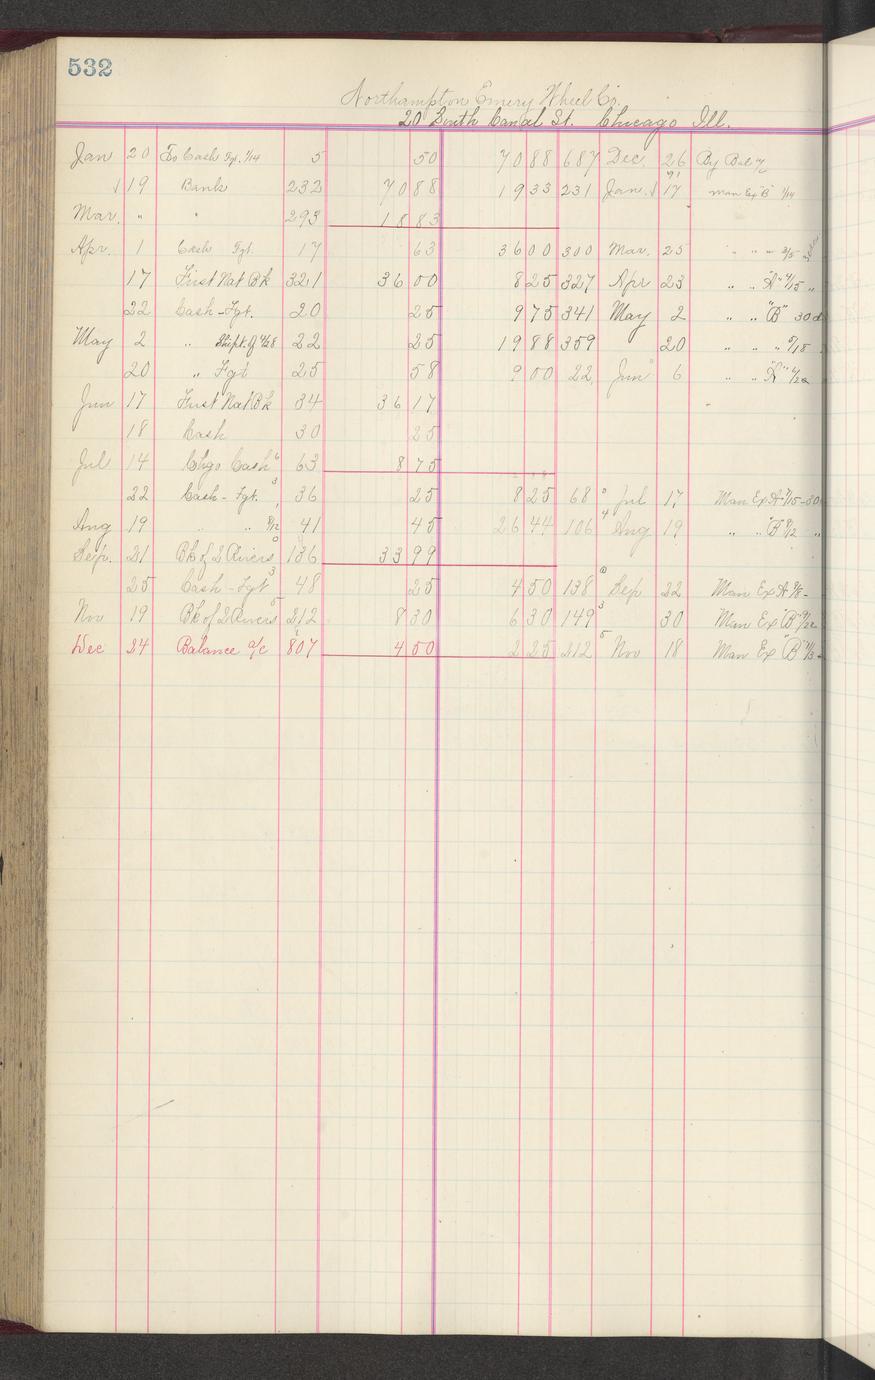 532
Northampton Emery Wheel Co.
20 South Canal St. Chicago Ill.
Jan 20 To Cash Fgt. 1/14 5 50 70 88 687 Dec. 26 By Bal
19 Bank 232 70 88 19 33 231 Jan. 91 17 Man Ex "B" 1/14
Mar. " " 293 18 83
Apr. 1 Cash Fgt. 17 63 36 00 300 Mar. 25 " " " 3/5
17 First Nat Bk 321 36 00 8 25 327 Apr 23 " " "A" 4/15 "
22 Cash - Fgt. 20 25 9 75 341 May 2 " " "B" 30d
May 2 " Shipt. of 4/28 22 25 19 88 359 20 " " " 5/18
20 " Fgt 25 58 9 00 22 Jun 6 " " "A"
Jun 17 First Nat Bk 34 36 17
18 Cash 30 25
Jul 14 Chgo Cash 6 63 8 75
22 Cash - Fgt. 3 36 25 8 25 68 0 Jul 17 Man Ex A 7/15 - 30
Aug 19 " " 8/12 1 41 45 26 44 106 4 Aug 19 " " "B" 8/12 "
Sep. 21 Bk of 2 Rivers 0 136 33 99
25 Cash - Fgt 3 48 25 4 50 138 0 Sep 22 Man Ex A 9/8 -
Nov 19 Bk of 2 Rivers 5 212 8 30 6 30 149 3 30 Man Ex "B" 9/22
Dec 24 Balance a/c 807 4 50 2 25 212 5 Nov 18 Man Ex "B" 11/3